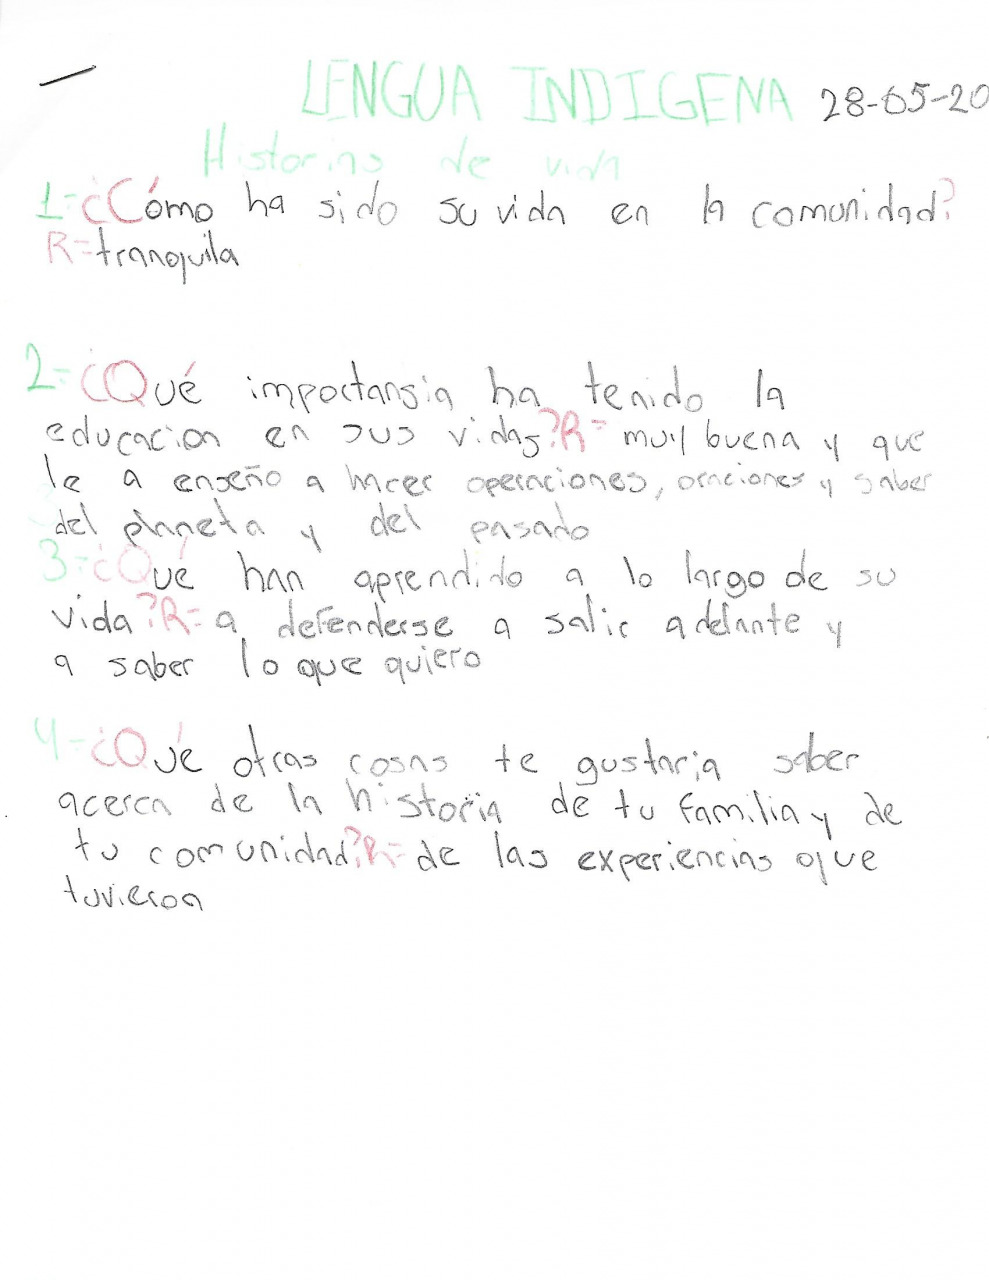 LENGUA INDIGENA 28-05-20
Historias de vida
1=¿Cómo ha sido su vida en la comunidad?
R=tranquila
2=¿Qué importansia ha tenido la
educacion en sus vidas?R= muy buena y que
le a enseño a hacer operaciones, oraciones y saber
del planeta y del pasado
3=¿Qué han aprendido a lo largo de su
vida?R= a defenderse a salir adelante y
a saber lo que quiero
4=¿Qué otras cosas te gustaria saber
acerca de la historia de tu familia y de
tu comunidad?R= de las experiencias que
tuvieron